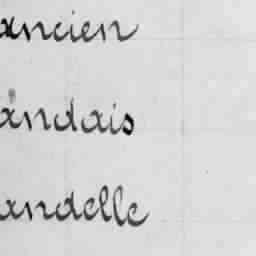 ancien
andais
andelle